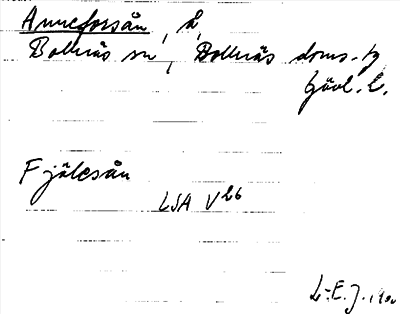 Anneforsån, å,
Bollnäs sn, Bollnäs doms. tg
Gävl. l.
Fjälesån
LSA V26
L-E. J.